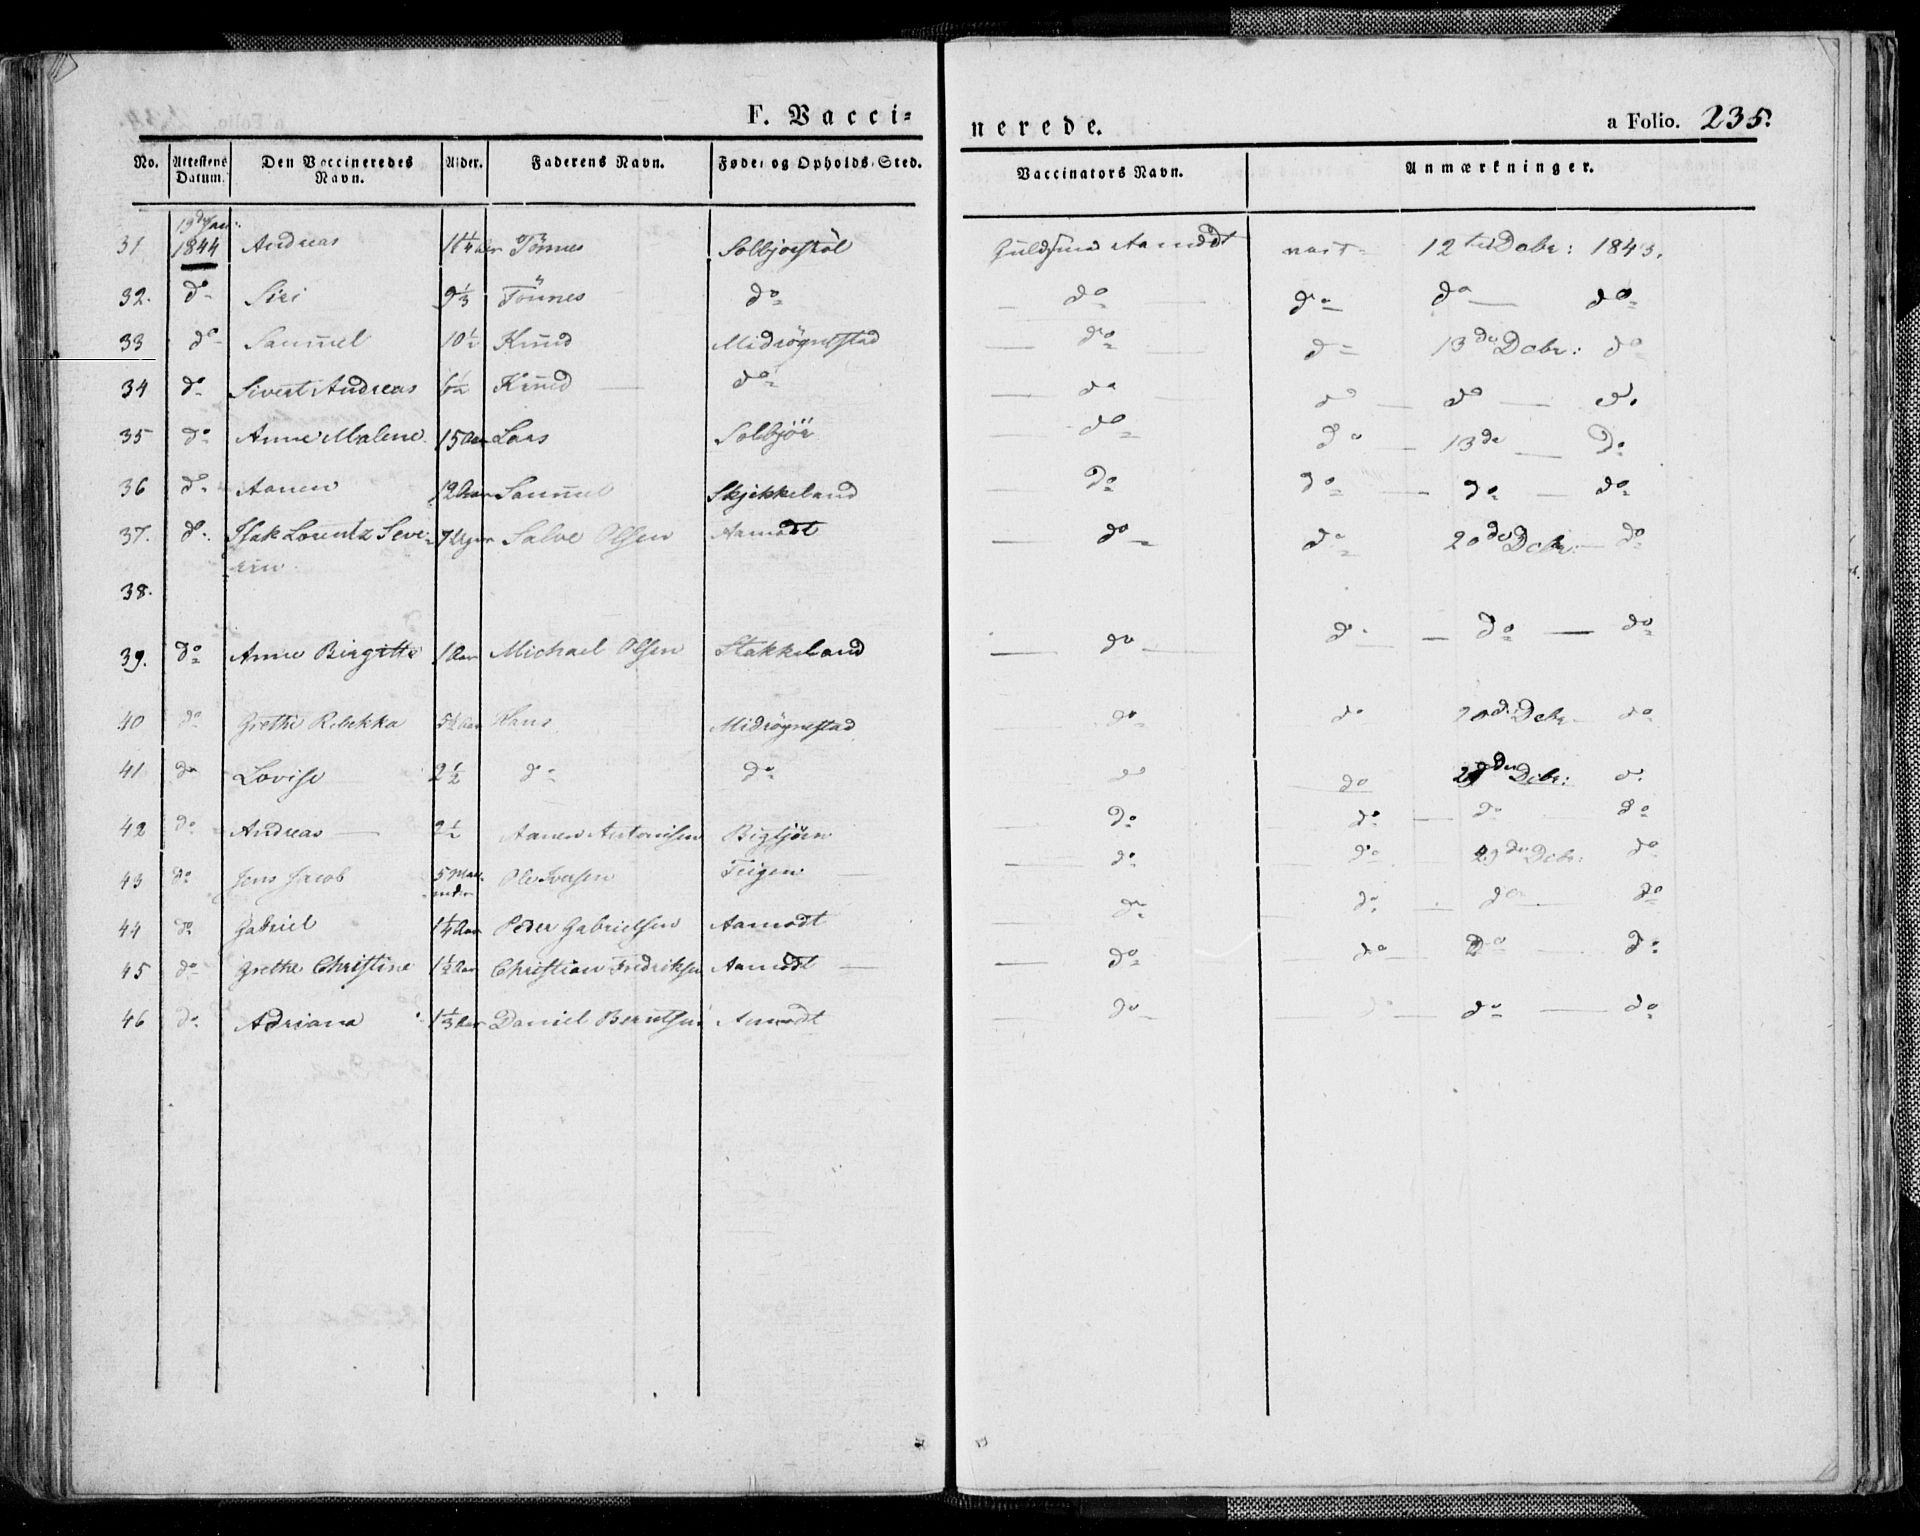 F. Vacci-
nerede.
a Folio. 235.
No. Attestens Datum. Den Vaccineredes Navn. Alder. Faderens Navn. Føde- og Opholds-Sted. Vaccinators Navn. Anmærkninger.
13de Jan:
31 1844 Andreas 1 1/4 Aar Tönnes Solbjorstöl Aamodt 12te Debr: 1843.
32. do Siri 9 1/3 Tönnes do do do do do
33 do Samuel 10 1/2 Knud Midrögnstad do do 13de Debr: do
34 do Sivert Andreas 6 1/2 Knud do do do do do
35 do Anne Malene 15 Aar Lars Solbjör do do 13de do
36 do Aanen 12 Aar Samuel Skjekkeland do do do do
37. do Isak Lorentz Seve- 7 Uger Salve Olsen Aamodt do do 20de Debr: do
rin
38.
39. do Anne Birgitte 1 Aar Michael Olsen Stakkeland do do do do
40 do Grethe Rebekka 5 1/2 Aar Hans Midrögnstad do do 20de Debr do
41 do Lovise 2 1/2 do do do do Debr: do
42 do Andreas 2 1/2 Aanen Antonisen Bigtjörn do do do do
43 do Jens Jacob 5 Maa- Ole Iversen Teigen do do 29de Debr: do
neder
44 do Gabriel 1 1/4 Aar Peder Gabrielsen Aamodt do do do do
45 do Grethe Christine 1 1/2 Aar Christian Fredriksen Aamodt do do do do
46 do Adriana 1 1/3 Aar Daniel Berntsen Aamodt do do do do